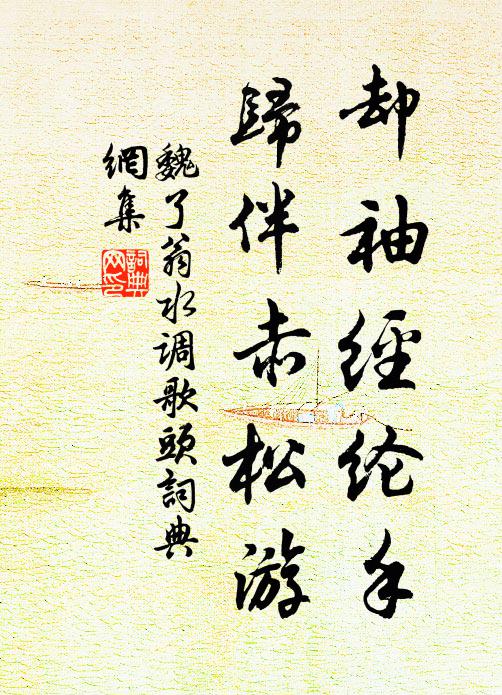 却袖經纶手
歸伴赤松游
魏了翁水调歌頭詞典
網集
詞典
网印